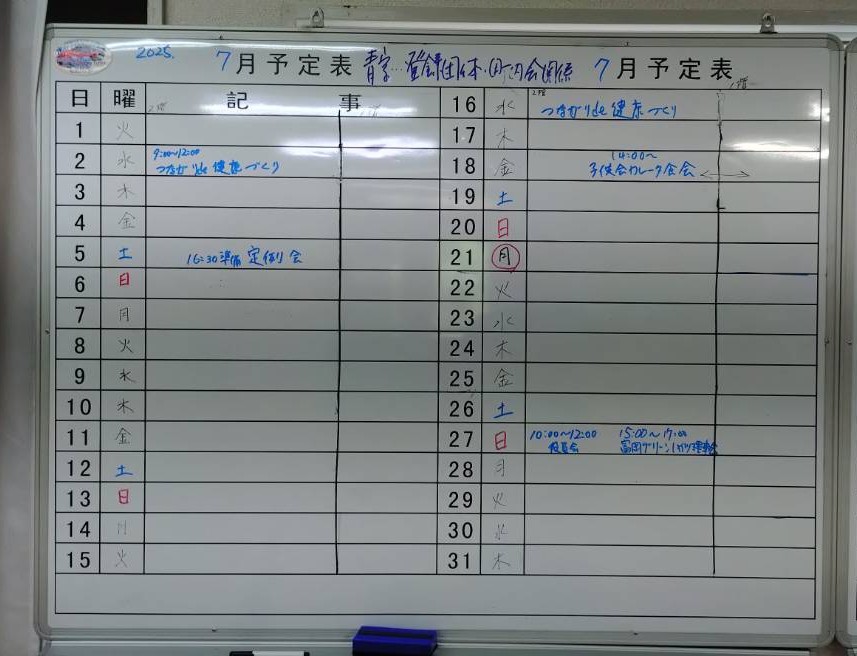 2025. 7月予定表 青字…登録団体・町内会関係 7月予定表
日 曜 記 事
2階 1階
1 火
2 水 9:00〜12:00
つながりde健康づくり
3 木
4 金
5 土 16:30準備 定例会
6 日
7 月
8 火
9 水
10 木
11 金
12 土
13 日
14 月
15 火
2階 1階
16 水 つながりde健康づくり
17 木
18 金 14:00〜
子供会カレー夕食会
19 土
20 日
21 月
22 火
23 水
24 木
25 金
26 土
27 日 10:00〜12:00 15:00〜17:00
役員会 富岡グリーンハイツ理事会
28 月
29 火
30 水
31 木